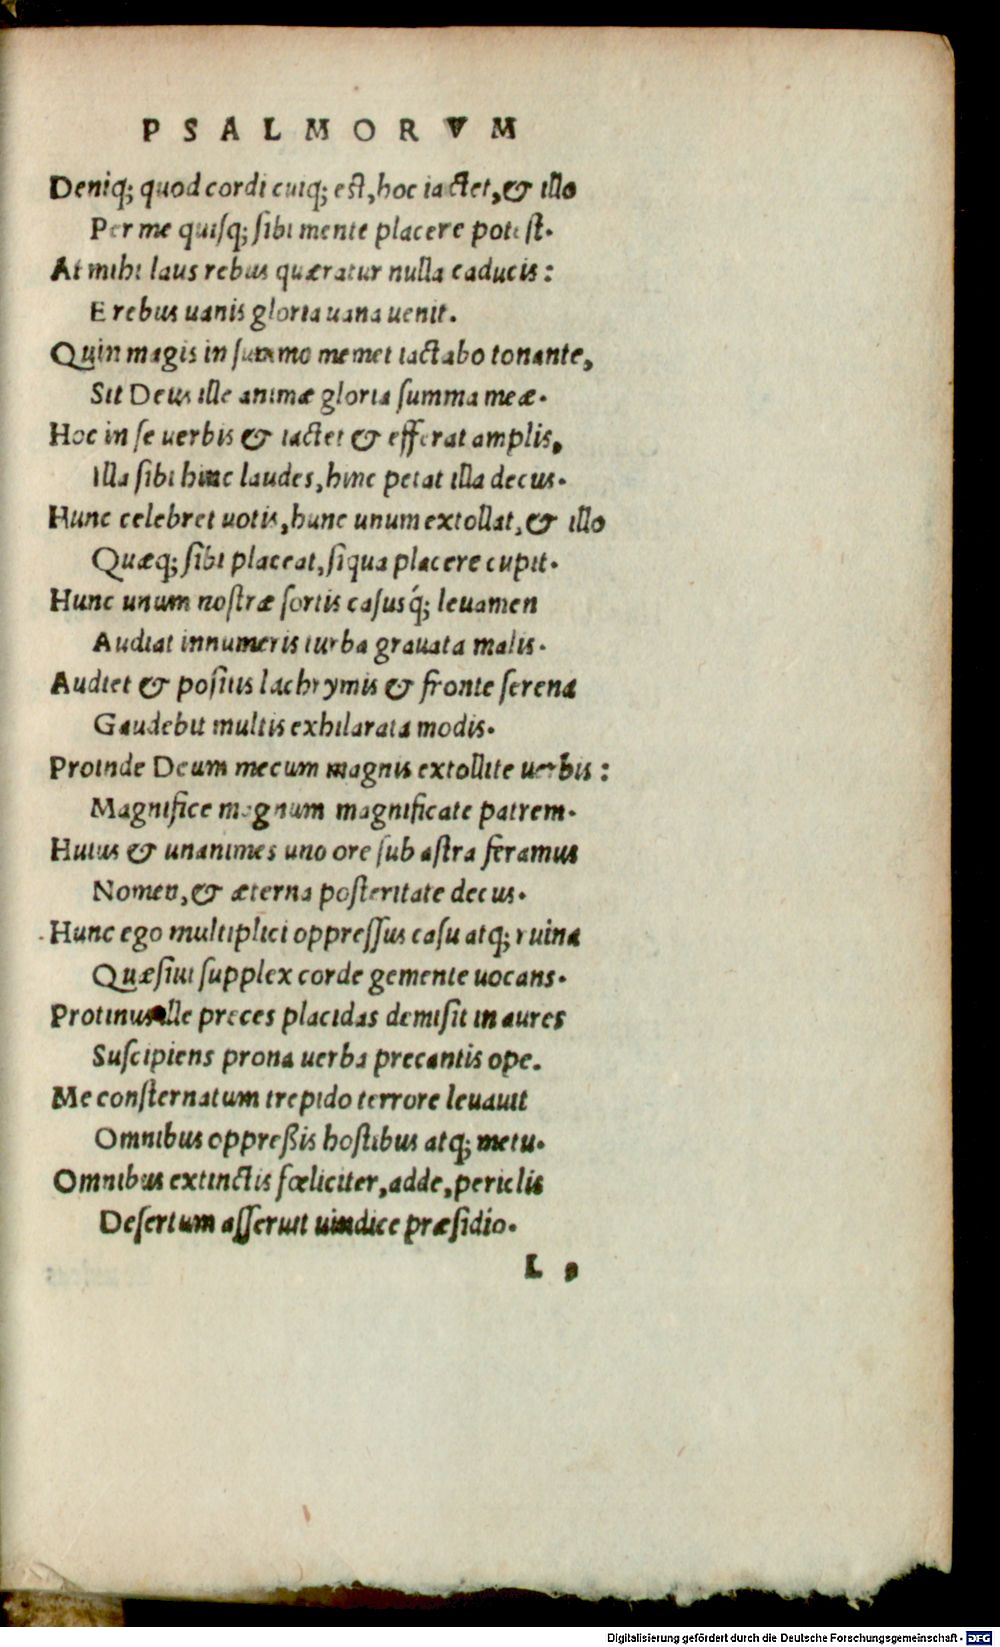 PSALMORVM
Deniq; quod cordi cuiq; est, hoc iactet, & illo
Per me quisq; sibi mente placere potest.
At mihi laus rebus quæratur nulla caducis:
E rebus uanis gloria uana uenit.
Quin magis in summo memet iactabo tonante,
Sit Deus ille animæ gloria summa meæ.
Hoc in se uerbis & iactet & efferat amplis,
Illa sibi hinc laudes, hinc petat illa decus.
Hunc celebret uotis, hunc unum extollat, & illo
Quæq; sibi placeat, siqua placere cupit.
Hunc unum nostræ sortis casusq́; leuamen
Audiat innumeris turba grauata malis.
Audiet & positis lachrymis & fronte serena
Gaudebit multis exhilarata modis.
Proinde Deum mecum magnis extollite uerbis:
Magnifice magnum magnificate patrem.
Huius & unanimes uno ore sub astra feramus
Nomen, & æterna posteritate decus.
Hunc ego multiplici oppressus casu atq; ruina
Quæsiui supplex corde gemente uocans.
Protinus ille preces placidas demisit in aures
Suscipiens prona uerba precantis ope.
Me consternatum trepido terrore leuauit
Omnibus oppreßis hostibus atq; metu.
Omnibus extinctis fœliciter, adde, periclis
Desertum asseruit uindice præsidio.
L
Digitalisierung gefördert durch die Deutsche Forschungsgemeinschaft - DFG